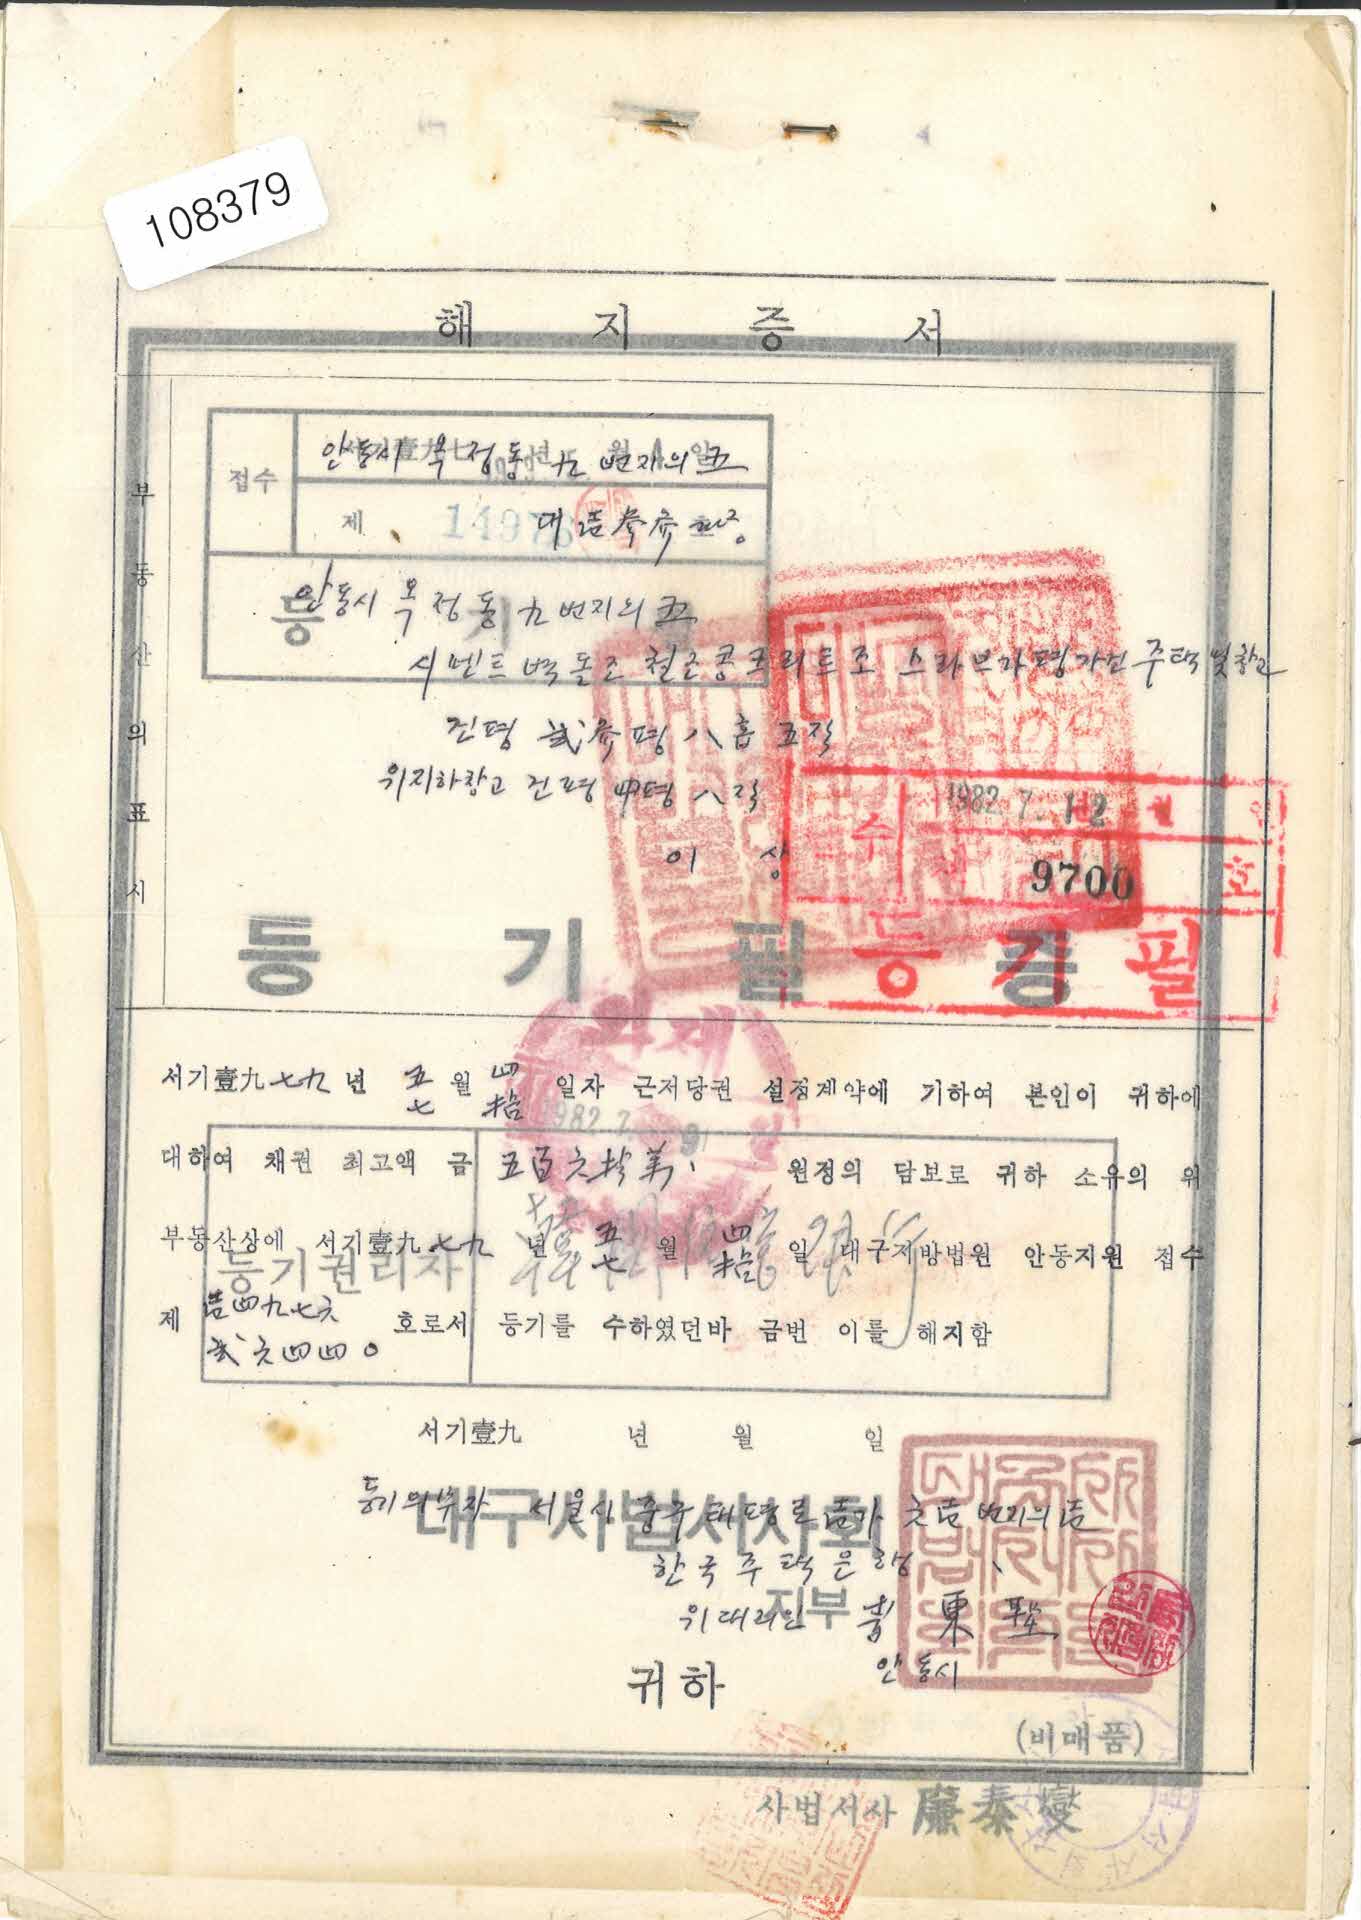 108379
해 지 증 서
부 동 산 의 표 시
접수
안동시 목정동 九 번지의 五
제 14976
안동시 목정동 九 번지의 五
시멘트 벽돌조 철근콩크리트조 스라브가 평가건 주택 및 창고
건평 평 八홉 五작
위지하창고 건평 평 八작
이 상
1982. 7. 12
수
9700 호
등 기 필
등 기 필 증
서기壹九七九 년 五 월 四 일자 근저당권 설정계약에 기하여 본인이 귀하에
七 拾
1982. 7. 9
대하여 채권 최고액 금 五百六拾萬 원정의 담보로 귀하 소유의 위
부동산상에 서기壹九七九 년 五 월 四 일 대구지방법원 안동지원 접수
七 拾
등기권리자
제 壱四九七六 호로서 등기를 수하였던바 금번 이를 해지함
弍六四四〇
서기壹九 년 월 일
등기의무자 서울시 중구 태평로 壱가 六壱 번지의 壱
대구사법서사회
한국주택은행
지부
위대리인 東 聖
안동시
귀하
(비매품)
사법서사 廉泰燮